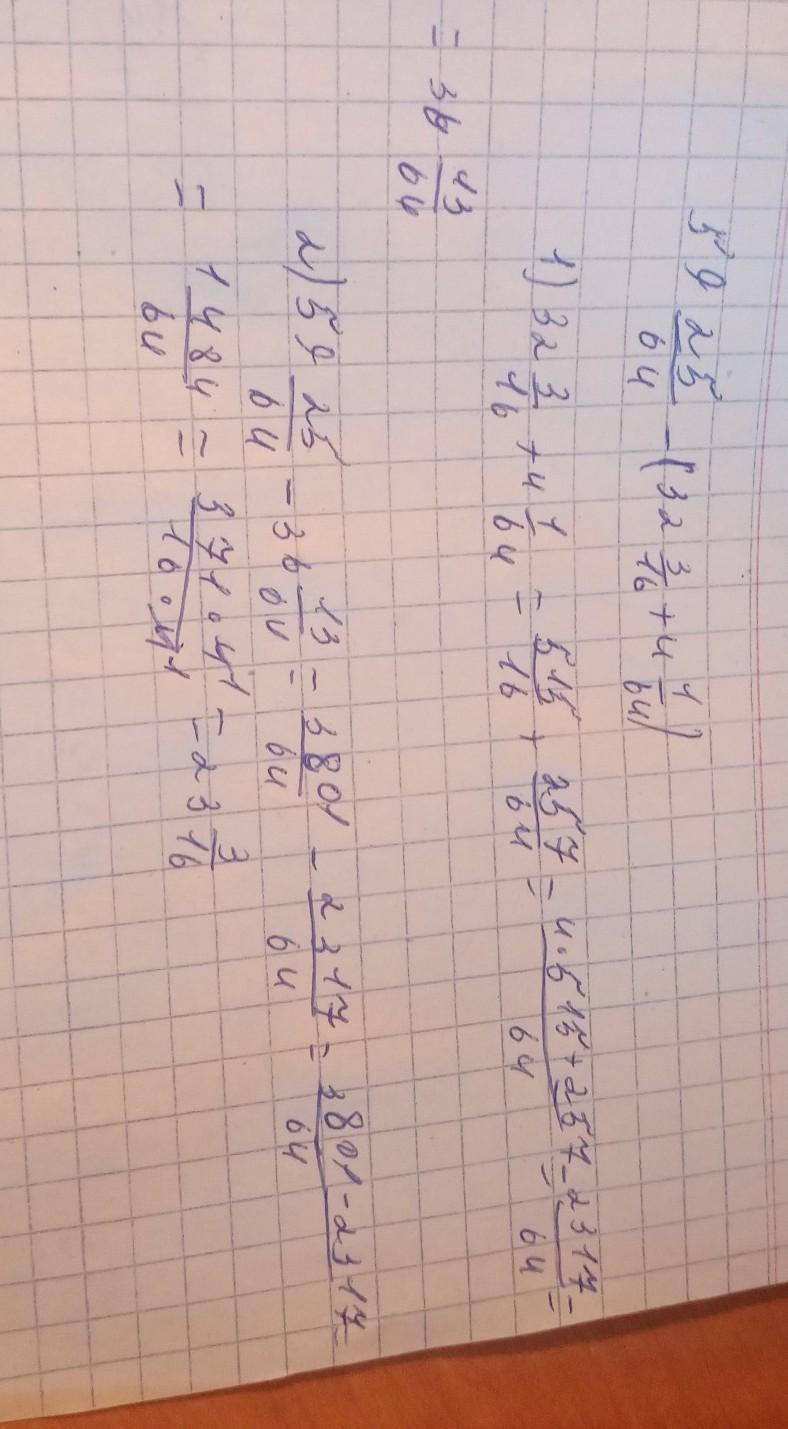 59 25/64 - (32 3/16 + 4 1/64)
1) 32 3/16 + 4 1/64 = 515/16 + 257/64 = (4·515+257)/64 = 2317/64 =
= 36 13/64
2) 59 25/64 - 36 13/64 = 3801/64 - 2317/64 = (3801-2317)/64 =
= 1484/64 = (371·4¹)/(16·4¹) = 23 3/16